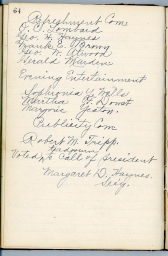 64
Refreshment Com
C. F. Lombard
Geo. H. Haynes
Frank E.
Geo. W. Atwood
Gerald Mardene
Evening Entertainment
Sophronia Y. Mills
Martha H. Donst
Marjorie Seaton.
Publicity Com
Robert M. Tripp.
Voted, Call of President
Margaret D. Haynes.
Secy.